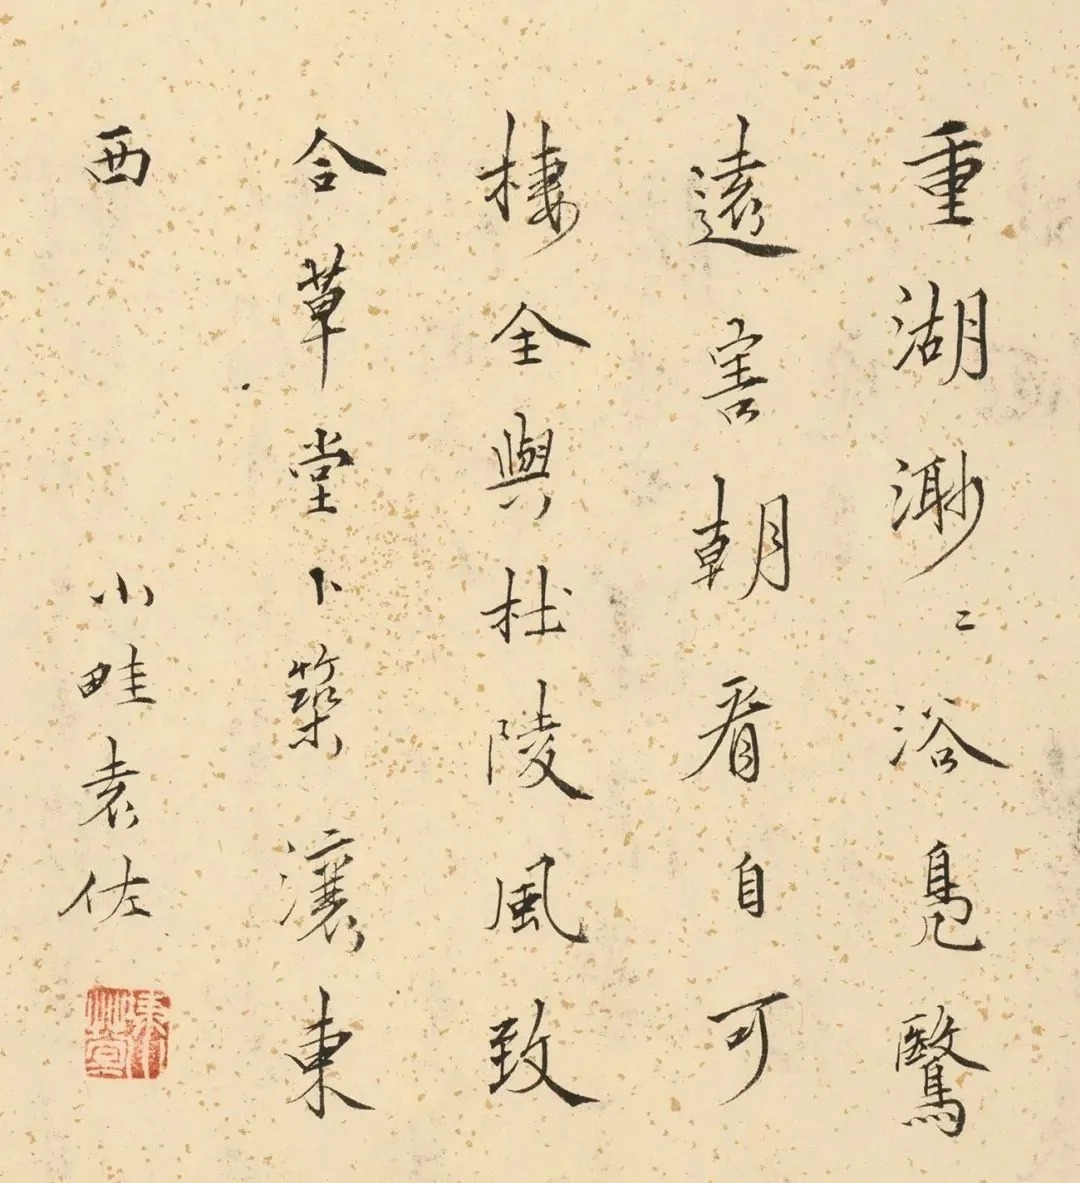 重湖渺〻浴鳧鷖
遠害朝看自可
棲全與杜陵風致
合草堂卜築瀼東
西
小畦袁佐